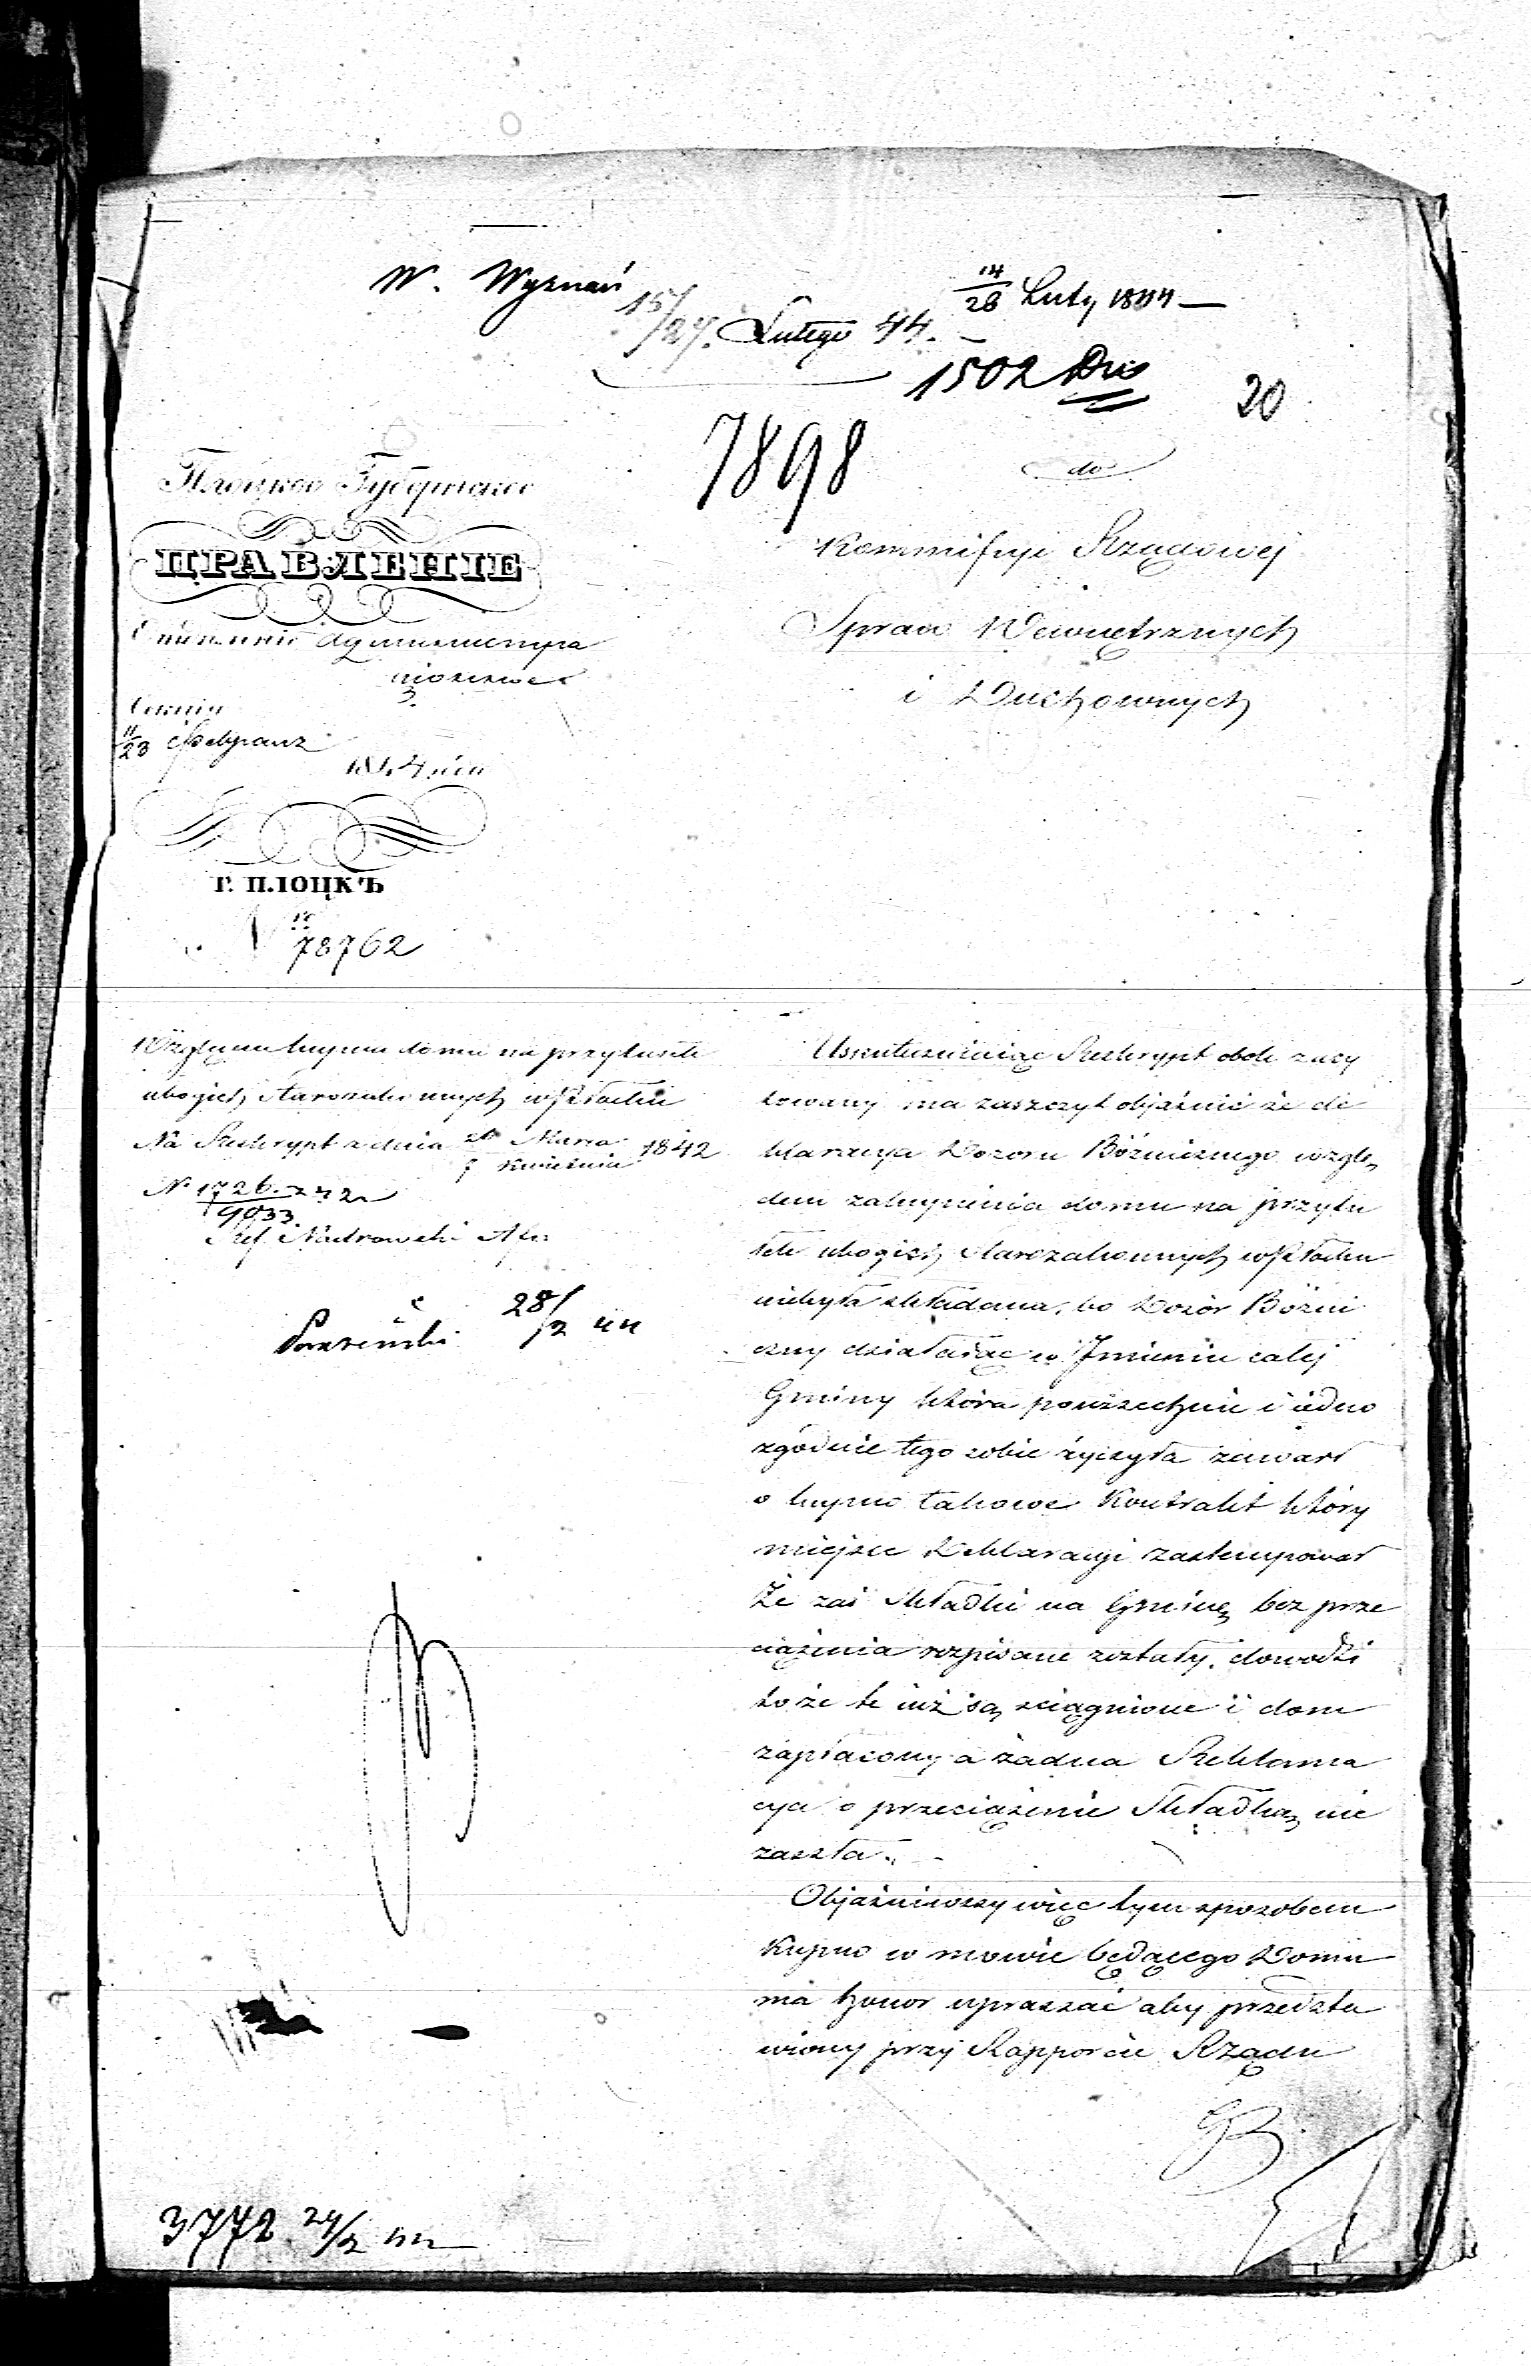 W. Wyznań
14/26 Luty 1844
15/27. Lutego 44.
1502 Dws
20
7898
Плоцкое Губернское
ПРАВЛЕНІЕ
Отделение Администра
ціозное
3.
Секціи
11/23 Февраля
1844 года
Г. ПЛОЦКЪ
№ 78762
do
Kommissyi Rządowej
Spraw Wewnętrznych
i Duchownych
Względem kupna domu na przytułek
ubogich Starozakonnych w Płocku
Na Reskrypt z dnia 26 Marca / 7 Kwietnia 1842
N 1726.242 / 9033.
Ref. Nadrowski
28/2 44
Uskuteczniaiąc Reskrypt obok zacy
towany ma zaszczyt objaśnić że de
klaracya Dozoru Bóżniczego wzglę
dem zakupienia domu na przytu
łek ubogich Starozakonnych w Płocku
niebyła składana, bo Dozór Bóżni
czny działaiąc w Jmieniu całej
Gminy która powszechnie i iedno
zgodnie tego sobie życzyła zawarł
o kupno takowe Kontrakt który
miejsce Deklaracyi zastempował
Że zaś Składki na Gminę bez prze
ciążenia rozpisane zostały, dowodzi
to że te iuż są ściągnione i dom
zapłacony a żadna Reklama
cya o przeciążenie Składką nie
zaszła.
Objaśniwszy więc tym sposobem
Kupno w mowie będącego Domu
ma honor upraszać aby przedsta
wiony przy Rapporcie Rządu
3772 29/2 44